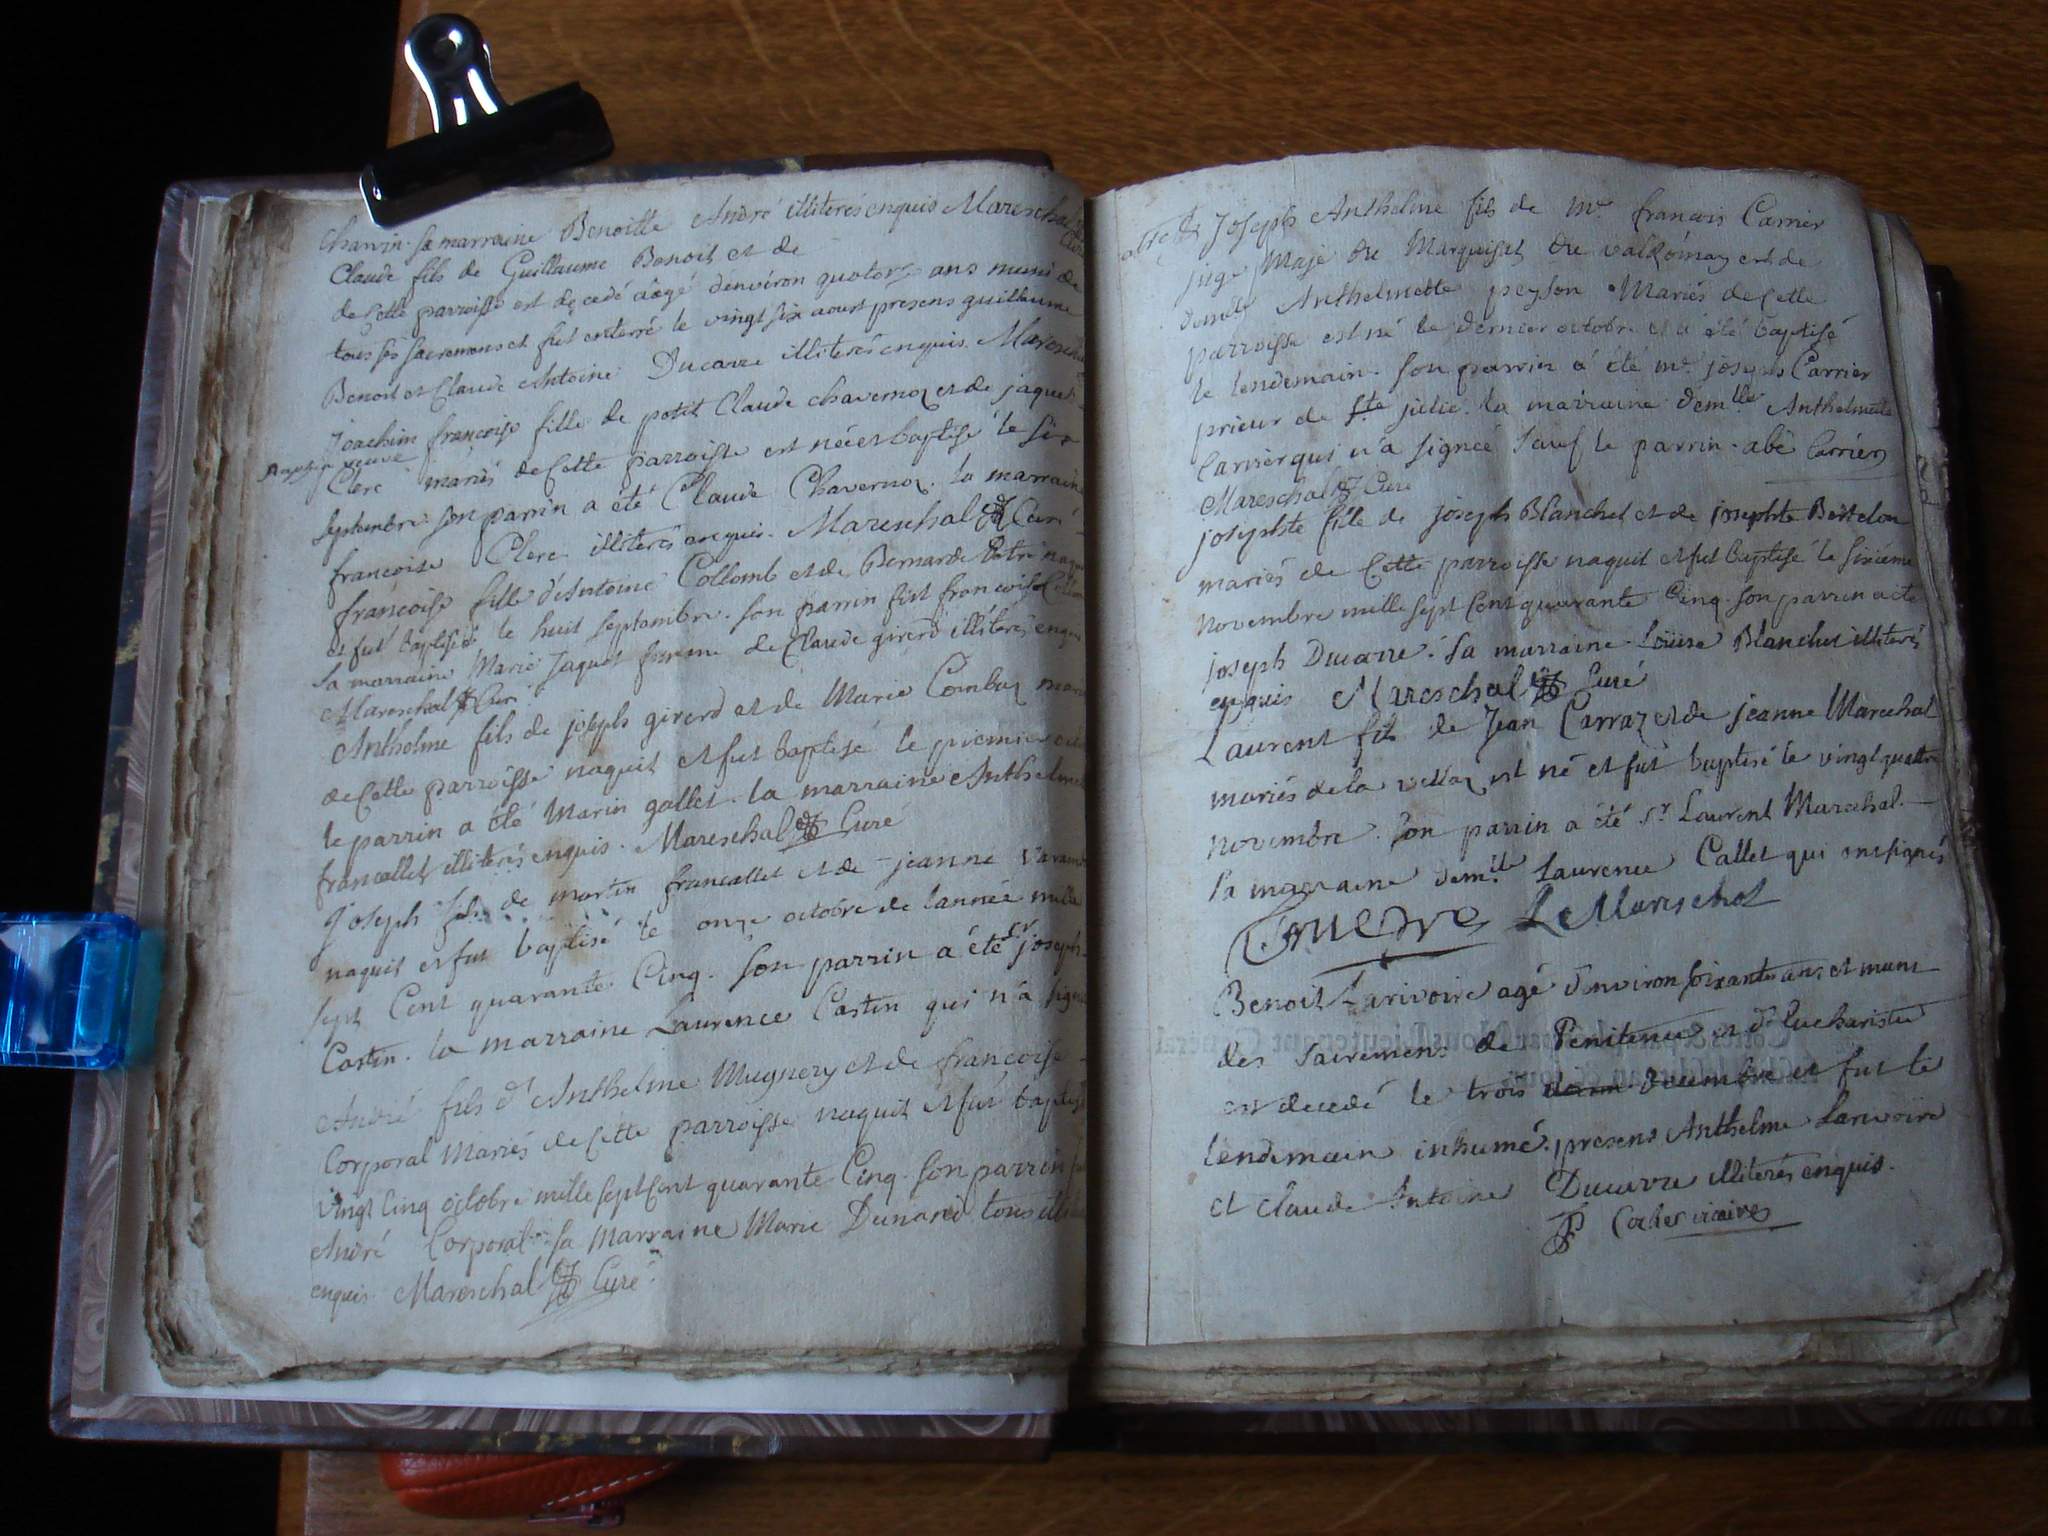 charvin. sa marraine Benoitte André illiterés enquis Mareschal
Curé
Claude fils de Guillaume Benoit et de
de Cette parroisse est decedé aagé denviron quatorze ans muni de
tous ses sacremens et fut enterré le vingt six aoust presens guillaume
Benoit et Claude Antoine Ducarre illiterés enquis. Mareschal
Joachim francoise fille de petit Claude chavernoz et de jaquet
Clerc mariés de Cette parroisse est née et baptisée le six
septembre. son parrin a été Claude Chavernoz. la marraine
francoise Clerc illiterés enquis. Mareschal Curé
francoise fille d'Antoine Collomb et de Bernarde naquit
et fut baptisée le huit septembre. son parrin fut francois Collomb
sa marraine Marie Jaquet femme de Claude girerd illiterés enquis
Mareschal Curé
Anthelme fils de joseph girerd et de Marie Combaz mariés
de Cette parroisse naquit et fut baptisé le premier
le parrin a été Marin gallet. la marraine Anthelme
francallet illiterés enquis. Mareschal Curé
Joseph fils de martin francallet et de jeanne
naquit et fut baptisé le onze octobre de lannée mille
sept Cent quarante Cinq. son parrin a été sr joseph
Castin. la marraine Laurence Castin qui n'a signé
André fils d'Anthelme Mugnery et de francoise
Corporal Mariés de Cette parroisse naquit et fut baptisé
vingt Cinq octobre mille sept Cent quarante Cinq. son parrin
André Corporal. sa Marraine Marie Dunand tous
enquis Mareschal Curé
Joseph Anthelme fils de Mr. francois Carrier
juge Maje du Marquisat du valromay et de
demlle Anthelmette peyson Mariés de Cette
parroisse est né le dernier octobre et a été baptisé
le lendemain. son parrin a été mr. joseph Carrier
prieur de ste julie. la marraine demlle Anthelmette
Carrier qui n'a signée sauf le parrin. abé Carrier
Mareschal Curé
josephte fille de joseph Blanchet et de josephte Bertelon
mariés de Cette parroisse naquit et fut baptisé le sixieme
Novembre mille sept Cent quarante Cinq. son parrin a été
joseph Ducarre. sa marraine Louise Blanchet illiterés
enquis Mareschal Curé
Laurent fils de Jean Carraz et de jeanne Marechal
mariés de la est né et fut baptisé le vingt quatre
novembre. son parrin a été sr. Laurent Marechal.
sa marraine demlle Laurence Callet qui ont signés
Le Mareschal
Benoit Larivoire agé d'environ soixante ans et muni
des sacremens de Penitence et d'Eucharistie
est decedé le trois decembre et fut le
lendemain inhumé. presens Anthelme Larivoire
et claude Antoine Ducarre illiterés enquis.
Cocher vicaire